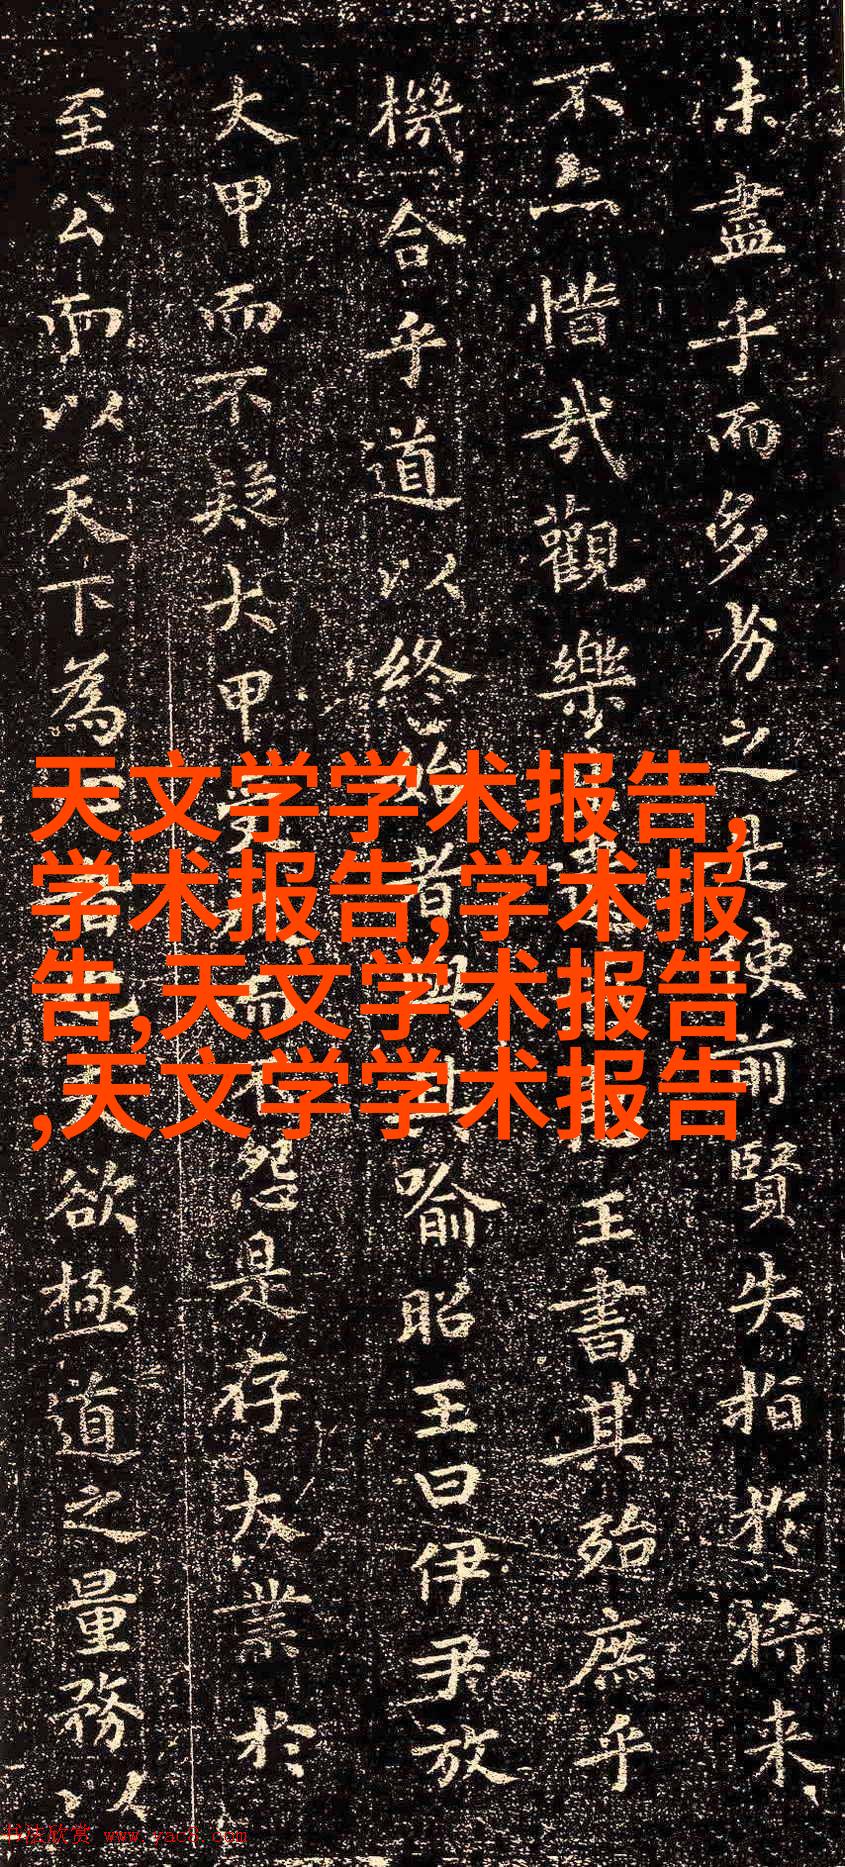 未盡乎而多劣之是使前賢失指於將来
不亦惜哉觀樂遺王書其殆庶乎
機合乎道以終始者與其喻昭王曰伊尹放
大甲而不疑大甲受而不怨是存大業於
至公而以天下為者也欲極道之量務以
天文学学术报告,
学术报告,学术报
告,天文学术报告
,天文学学术报告
书法欣赏 www.yac8.com